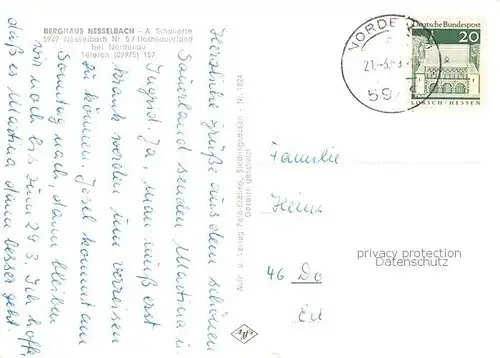 BERGHAUS NESSELBACH - A. Schauerte
5949 Nesselbach Nr. 5 / Hochsauerland
bei Nordenau
Telefon (02975) 157
Herzliche Grüße aus dem schönen
Sauerland senden Martina u.
Ingrid. Ja, man muß erst
krank werden um verreisen
zu können. Josef kommt am
Sonntag nach, dann bleiben
wir noch bis zum 29.3. Ich hoffe,
daß es Martina dann besser geht.
Gesetzl. geschützt
Nr. 1824
NORDE
21.-3.
59
Deutsche Bundespost
20
LORSCH · HESSEN
Familie
Heinz
46 Do
privacy protection
Datenschutz